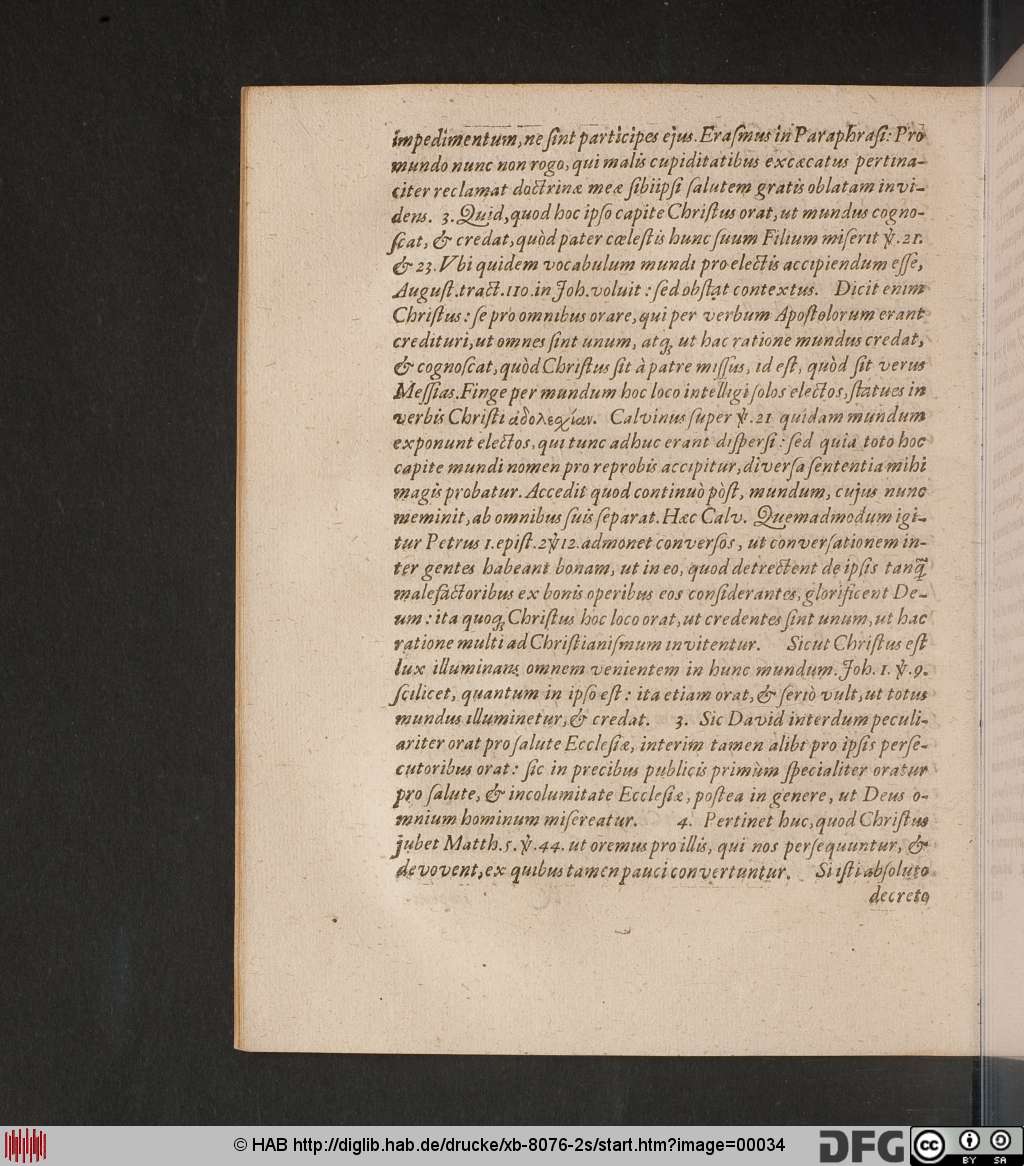 impedimentum, ne ſint participes ejus. Eraſmus in Paraphraſi: Pro
mundo nunc non rogo, qui malis cupiditatibus excæcatus pertina-
citer reclamat doctrinæ meæ ſibiipſi ſalutem gratis oblatam invi-
dens. 3. Quid, quod hoc ipſo capite Chriſtus orat, ut mundus cogno-
ſcat, & credat, quòd pater cœleſtis hunc ſuum Filium miſerit ℣. 21.
& 23. Vbi quidem vocabulum mundi pro electis accipiendum eſſe,
Auguſt. tract. 110. in Joh. voluit: ſed obſtat contextus. Dicit enim
Chriſtus: ſe pro omnibus orare, qui per verbum Apoſtolorum erant
credituri, ut omnes ſint unum, atq́; ut hac ratione mundus credat,
& cognoſcat, quòd Chriſtus ſit à patre miſſus, id eſt, quòd ſit verus
Meſſias. Finge per mundum hoc loco intelligi ſolos electos, ſtatues in
verbis Chriſti ἀδολεχίαν. Calvinus ſuper ℣. 21 quidam mundum
exponunt electos, qui tunc adhuc erant diſperſi: ſed quia toto hoc
capite mundi nomen pro reprobis accipitur, diverſa ſententia mihi
magis probatur. Accedit quod continuò pòſt, mundum, cujus nunc
meminit, ab omnibus ſuis ſeparat. Hæc Calv. Quemadmodum igi-
tur Petrus 1. epiſt. 2 ℣ 12. admonet converſos, ut converſationem in-
ter gentes habeant bonam, ut in eo, quod detrectent de ipſis tanq̃
malefactoribus ex bonis operibus eos conſiderantes, glorificent De-
um: ita quoq́; Chriſtus hoc loco orat, ut credentes ſint unum, ut hac
ratione multi ad Chriſtianiſmum invitentur. Sicut Chriſtus eſt
lux illuminans omnem venientem in hunc mundum. Joh. 1. ℣. 9.
ſcilicet, quantum in ipſo eſt: ita etiam orat, & ſeriò vult, ut totus
mundus illuminetur, & credat. 3. Sic David interdum peculi-
ariter orat pro ſalute Eccleſiæ, interim tamen alibi pro ipſis perſe-
cutoribus orat: ſic in precibus publicis primùm ſpecialiter oratur
pro ſalute, & incolumitate Eccleſiæ, poſtea in genere, ut Deus o-
mnium hominum miſereatur. 4. Pertinet huc, quod Chriſtus
jubet Matth. 5. ℣. 44. ut oremus pro illis, qui nos perſequuntur, &
devovent, ex quibus tamen pauci convertuntur. Si iſti abſoluto
decreto
© HAB http://diglib.hab.de/drucke/xb-8076-2s/start.htm?image=00034
DFG
cc BY SA